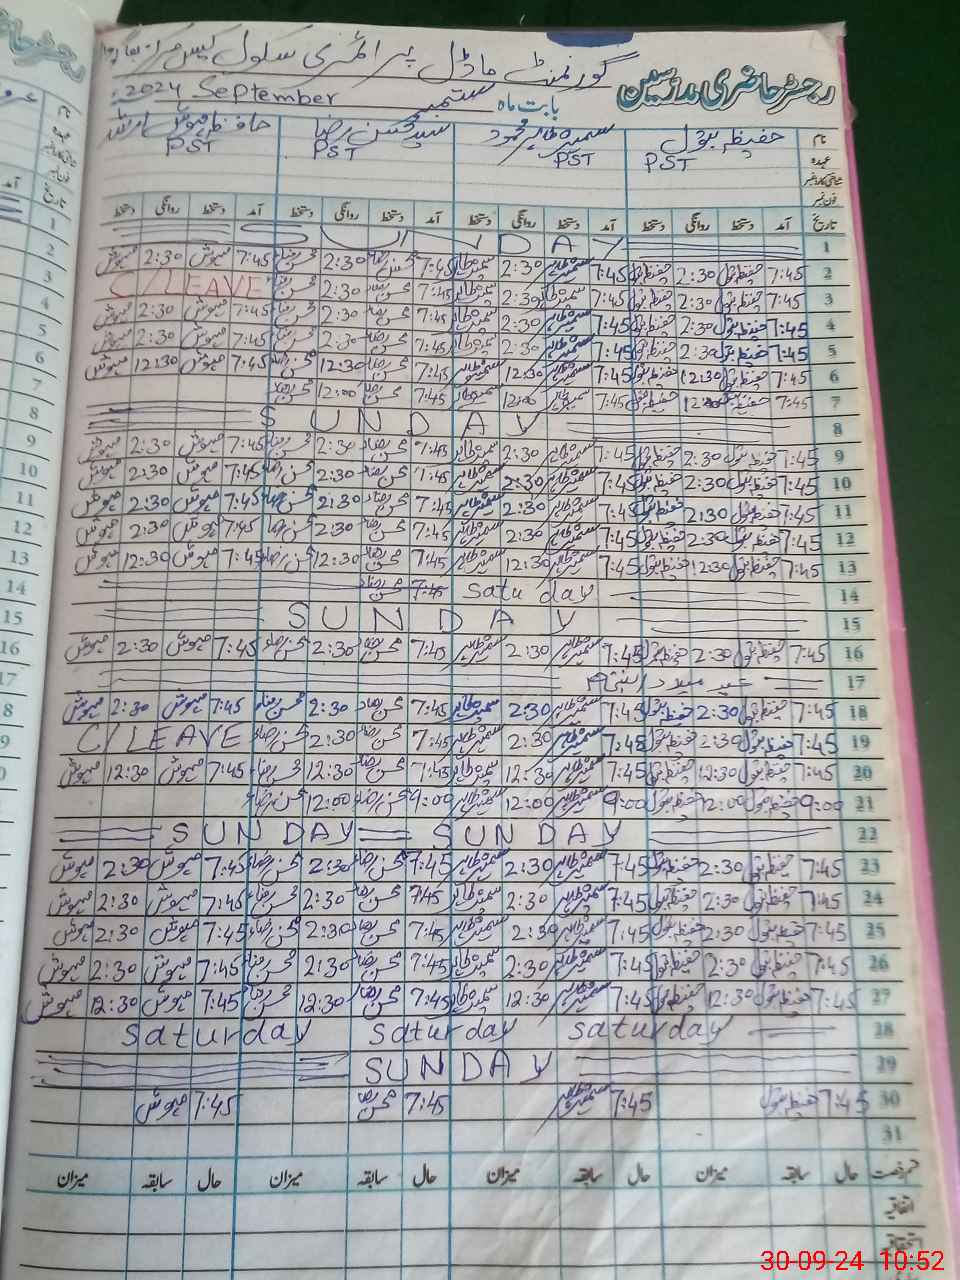 رجسٹر حاضری مدرسین
گورنمنٹ ماڈل پرائمری سکول
بابت ماہ ستمبر September 2024
نام حفیظ بتول سمیرہ طاہر محمود سید محسن رضا حافظ مہوش
عہدہ PST PST PST PST
فون نمبر
تاریخ آمد دستخط روانگی دستخط آمد دستخط روانگی دستخط آمد دستخط روانگی دستخط آمد دستخط روانگی دستخط
1 SUNDAY
2 7:45 حفیظ بتول 2:30 حفیظ بتول 7:45 سمیرہ طاہر 2:30 سمیرہ طاہر 7:45 محسن رضا 2:30 محسن رضا 7:45 مہوش 2:30 مہوش
3 7:45 حفیظ بتول 2:30 حفیظ بتول 7:45 سمیرہ طاہر 2:30 سمیرہ طاہر 7:45 محسن رضا 2:30 محسن رضا C/LEAVE
4 7:45 حفیظ بتول 2:30 حفیظ بتول 7:45 سمیرہ طاہر 2:30 سمیرہ طاہر 7:45 محسن رضا 2:30 محسن رضا 7:45 مہوش 2:30 مہوش
5 7:45 حفیظ بتول 2:30 حفیظ بتول 7:45 سمیرہ طاہر 2:30 سمیرہ طاہر 7:45 محسن رضا 2:30 محسن رضا 7:45 مہوش 2:30 مہوش
6 7:45 حفیظ بتول 12:30 حفیظ بتول 7:45 سمیرہ طاہر 12:30 سمیرہ طاہر 7:45 محسن رضا 12:30 محسن رضا 7:45 مہوش 12:30 مہوش
7 7:45 حفیظ بتول 12:00 حفیظ بتول 7:45 سمیرہ طاہر 12:00 سمیرہ طاہر 7:45 محسن رضا 12:00 محسن رضا
8 SUNDAY
9 7:45 حفیظ بتول 2:30 حفیظ بتول 7:45 سمیرہ طاہر 2:30 سمیرہ طاہر 7:45 محسن رضا 2:30 محسن رضا 7:45 مہوش 2:30 مہوش
10 7:45 حفیظ بتول 2:30 حفیظ بتول 7:45 سمیرہ طاہر 2:30 سمیرہ طاہر 7:45 محسن رضا 2:30 محسن رضا 7:45 مہوش 2:30 مہوش
11 7:45 حفیظ بتول 2:30 حفیظ بتول 7:45 سمیرہ طاہر 2:30 سمیرہ طاہر 7:45 محسن رضا 2:30 محسن رضا 7:45 مہوش 2:30 مہوش
12 7:45 حفیظ بتول 2:30 حفیظ بتول 7:45 سمیرہ طاہر 2:30 سمیرہ طاہر 7:45 محسن رضا 2:30 محسن رضا 7:45 مہوش 2:30 مہوش
13 7:45 حفیظ بتول 12:30 حفیظ بتول 7:45 سمیرہ طاہر 12:30 سمیرہ طاہر 7:45 محسن رضا 12:30 محسن رضا 7:45 مہوش 12:30 مہوش
14 Satu day 7:45 محسن رضا
15 SUNDAY
16 7:45 حفیظ بتول 2:30 حفیظ بتول 7:45 سمیرہ طاہر 2:30 سمیرہ طاہر 7:45 محسن رضا 2:30 محسن رضا 7:45 مہوش 2:30 مہوش
17 عید میلاد النبی
18 7:45 حفیظ بتول 2:30 حفیظ بتول 7:45 سمیرہ طاہر 2:30 سمیرہ طاہر 7:45 محسن رضا 2:30 محسن رضا 7:45 مہوش 2:30 مہوش
19 7:45 حفیظ بتول 2:30 حفیظ بتول 7:45 سمیرہ طاہر 2:30 سمیرہ طاہر 7:45 محسن رضا 2:30 محسن رضا C/LEAVE
20 7:45 حفیظ بتول 12:30 حفیظ بتول 7:45 سمیرہ طاہر 12:30 سمیرہ طاہر 7:45 محسن رضا 12:30 محسن رضا 7:45 مہوش 12:30 مہوش
21 9:00 حفیظ بتول 12:00 حفیظ بتول 9:00 سمیرہ طاہر 12:00 سمیرہ طاہر 9:00 محسن رضا 12:00 محسن رضا
22 SUNDAY SUNDAY
23 7:45 حفیظ بتول 2:30 حفیظ بتول 7:45 سمیرہ طاہر 2:30 سمیرہ طاہر 7:45 محسن رضا 2:30 محسن رضا 7:45 مہوش 2:30 مہوش
24 7:45 حفیظ بتول 2:30 حفیظ بتول 7:45 سمیرہ طاہر 2:30 سمیرہ طاہر 7:45 محسن رضا 2:30 محسن رضا 7:45 مہوش 2:30 مہوش
25 7:45 حفیظ بتول 2:30 حفیظ بتول 7:45 سمیرہ طاہر 2:30 سمیرہ طاہر 7:45 محسن رضا 2:30 محسن رضا 7:45 مہوش 2:30 مہوش
26 7:45 حفیظ بتول 2:30 حفیظ بتول 7:45 سمیرہ طاہر 2:30 سمیرہ طاہر 7:45 محسن رضا 2:30 محسن رضا 7:45 مہوش 2:30 مہوش
27 7:45 حفیظ بتول 12:30 حفیظ بتول 7:45 سمیرہ طاہر 12:30 سمیرہ طاہر 7:45 محسن رضا 12:30 محسن رضا 7:45 مہوش 12:30 مہوش
28 Saturday Saturday Saturday
29 SUNDAY
30 7:45 حفیظ بتول 7:45 سمیرہ طاہر 7:45 محسن رضا 7:45 مہوش
31
قسم رخصت حال سابقہ میزان حال سابقہ میزان حال سابقہ میزان حال سابقہ میزان
اتفاقیہ
استحقاقیہ
30-09-24 10:52